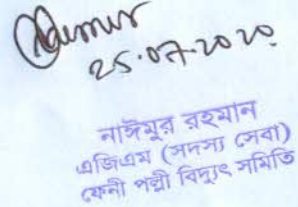 25.07.2020
নাঈমুর রহমান
এজিএম (সদস্য সেবা)
ফেনী পল্লী বিদ্যুৎ সমিতি